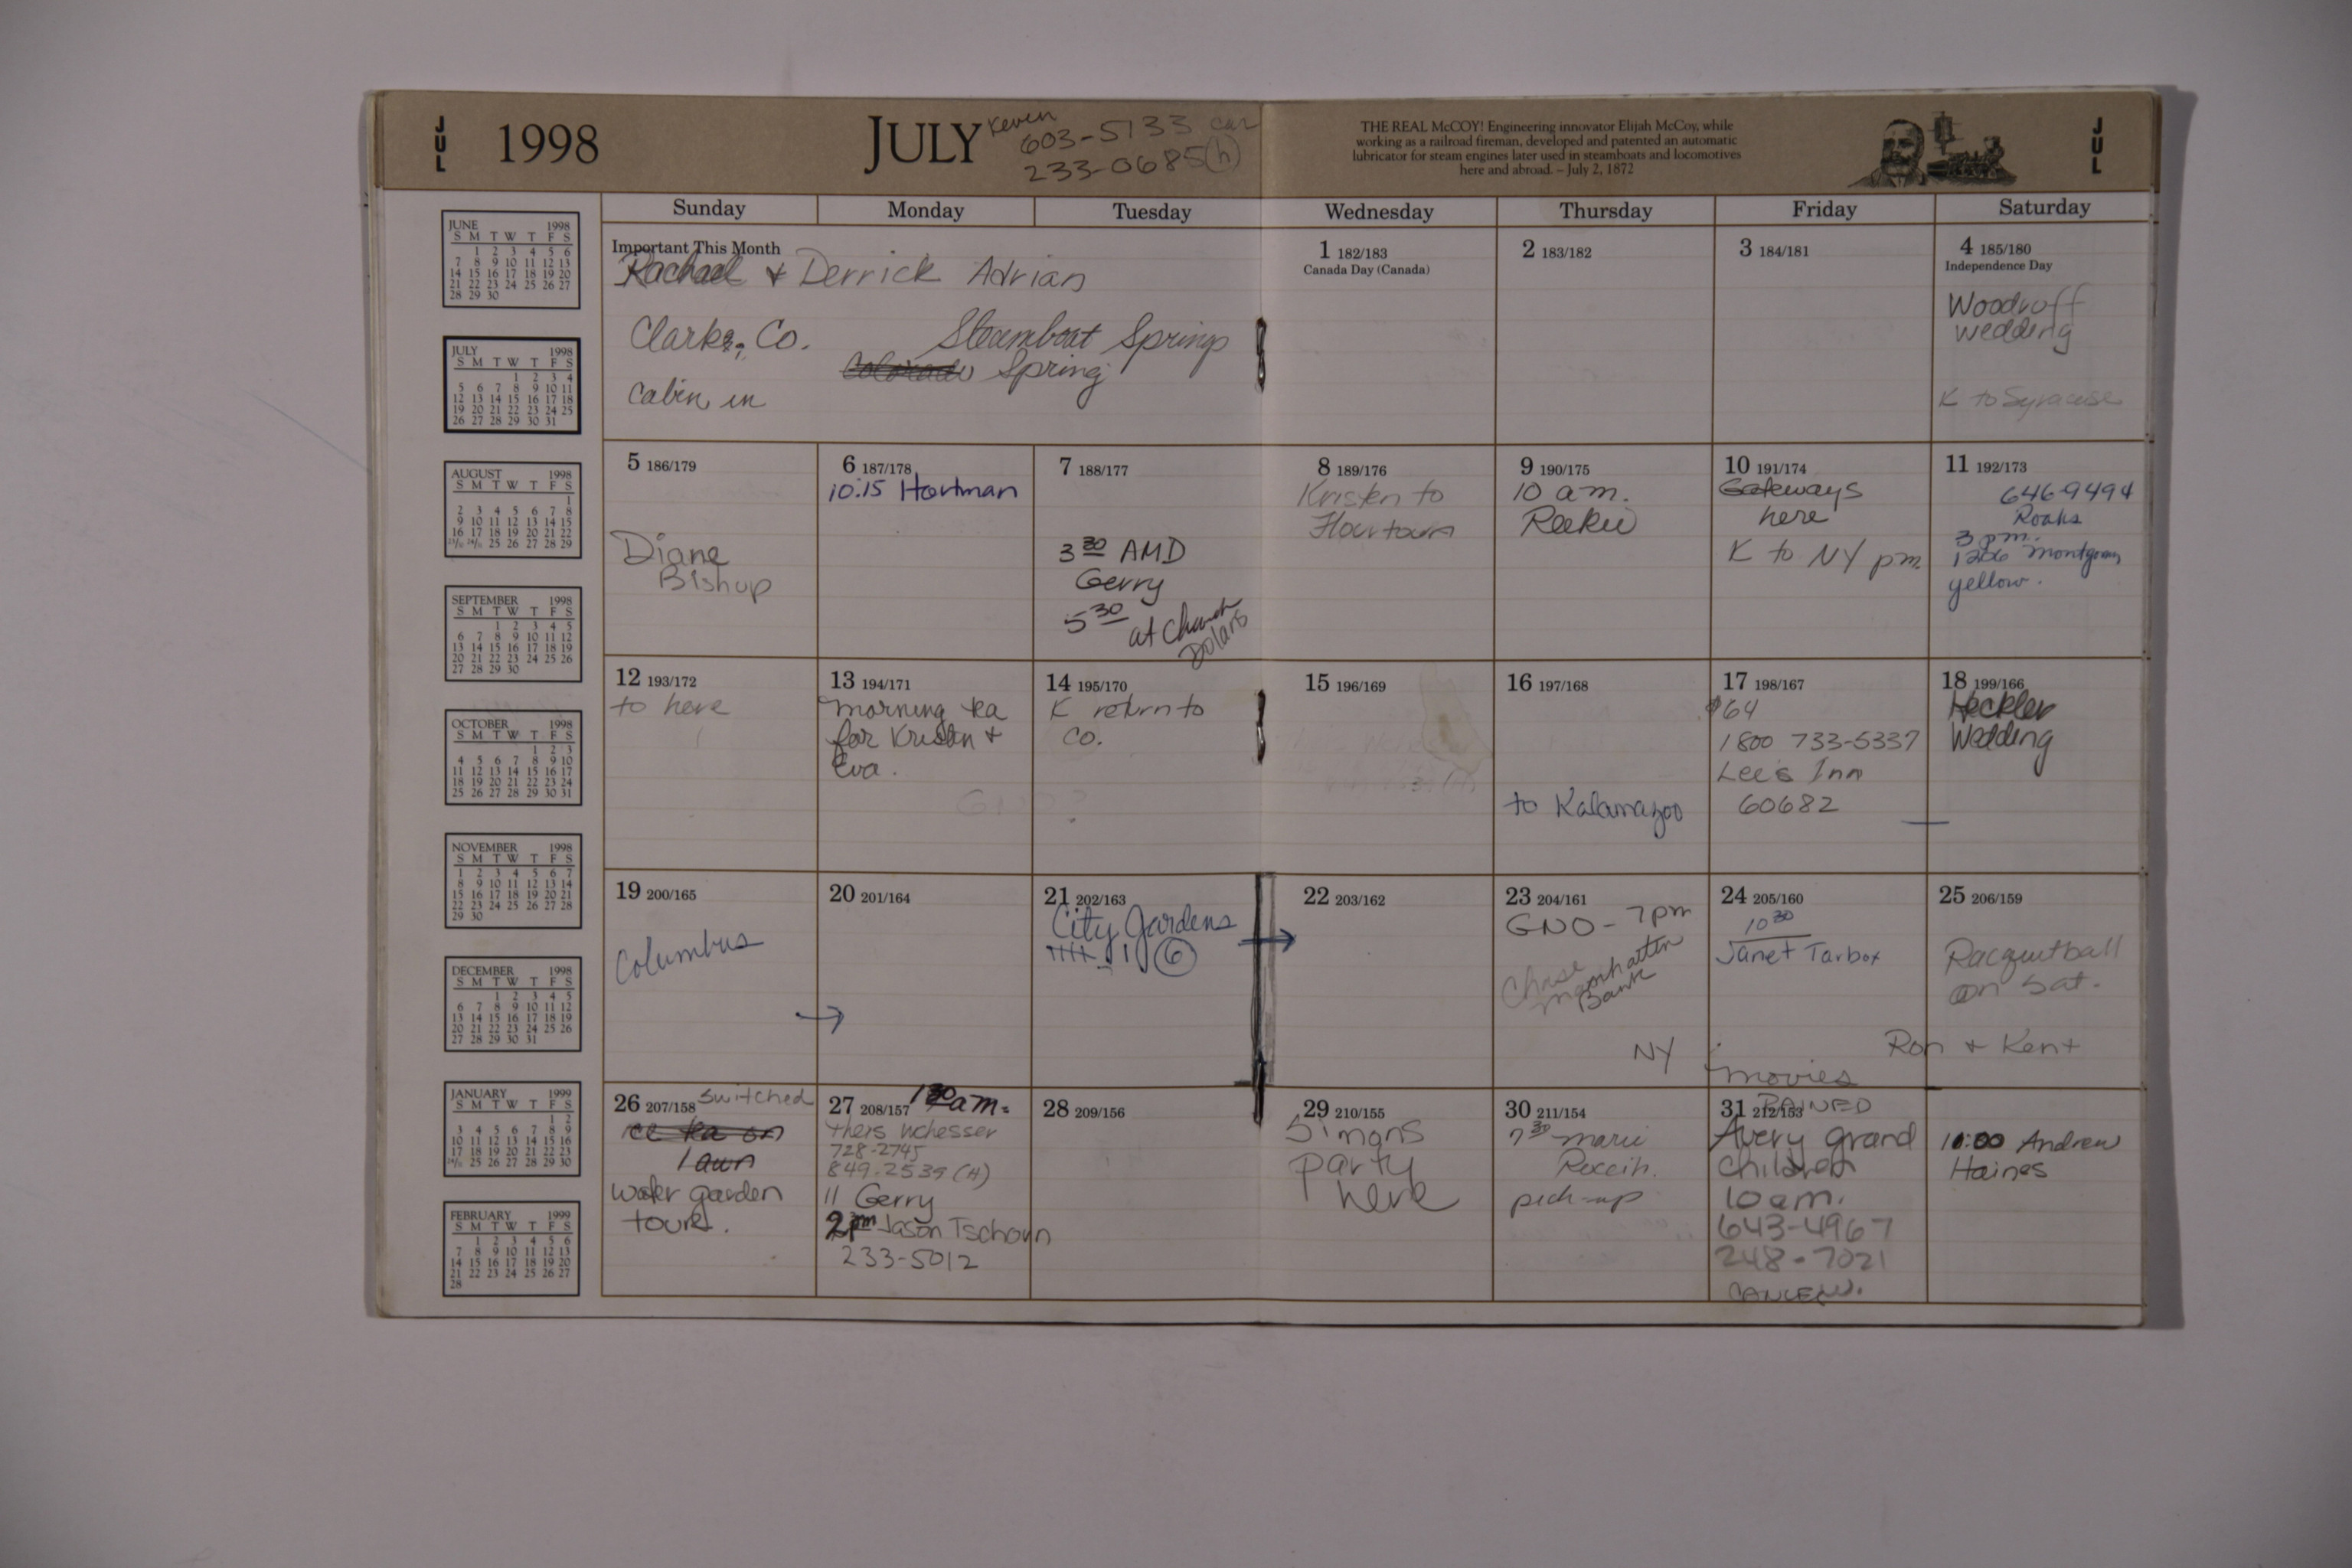 JUL 1998 JULY
Kevin
603-5133 car
233-0685 (h)
THE REAL McCOY! Engineering innovator Elijah McCoy, while
working as a railroad fireman, developed and patented an automatic
lubricator for steam engines later used in steamboats and locomotives
here and abroad. – July 2, 1872
JUL
Sunday Monday Tuesday Wednesday Thursday Friday Saturday
JUNE 1998
S M T W T F S
1 2 3 4 5 6
7 8 9 10 11 12 13
14 15 16 17 18 19 20
21 22 23 24 25 26 27
28 29 30
JULY 1998
S M T W T F S
1 2 3 4
5 6 7 8 9 10 11
12 13 14 15 16 17 18
19 20 21 22 23 24 25
26 27 28 29 30 31
AUGUST 1998
S M T W T F S
1
2 3 4 5 6 7 8
9 10 11 12 13 14 15
16 17 18 19 20 21 22
23/30 24/31 25 26 27 28 29
SEPTEMBER 1998
S M T W T F S
1 2 3 4 5
6 7 8 9 10 11 12
13 14 15 16 17 18 19
20 21 22 23 24 25 26
27 28 29 30
OCTOBER 1998
S M T W T F S
1 2 3
4 5 6 7 8 9 10
11 12 13 14 15 16 17
18 19 20 21 22 23 24
25 26 27 28 29 30 31
NOVEMBER 1998
S M T W T F S
1 2 3 4 5 6 7
8 9 10 11 12 13 14
15 16 17 18 19 20 21
22 23 24 25 26 27 28
29 30
DECEMBER 1998
S M T W T F S
1 2 3 4 5
6 7 8 9 10 11 12
13 14 15 16 17 18 19
20 21 22 23 24 25 26
27 28 29 30 31
JANUARY 1999
S M T W T F S
1 2
3 4 5 6 7 8 9
10 11 12 13 14 15 16
17 18 19 20 21 22 23
24/31 25 26 27 28 29 30
FEBRUARY 1999
S M T W T F S
1 2 3 4 5 6
7 8 9 10 11 12 13
14 15 16 17 18 19 20
21 22 23 24 25 26 27
28
Important This Month
Rachael + Derrick Adrian
Clark, Co. Steamboat Springs
Colorado Spring
Cabin in
1 182/183
Canada Day (Canada)
2 183/182
3 184/181
4 185/180
Independence Day
Woodruff
wedding
K to Syracuse
5 186/179
Diane
Bishop
6 187/178
10:15 Hartman
7 188/177
3 30 AMD
Gerry
5 30 at Church
Dolans
8 189/176
Kristen to
Flourtown
9 190/175
10 a.m.
10 191/174
Gateways
here
K to NY pm
11 192/173
646-9494
Roaks
3 pm.
yellow.
12 193/172
to here
13 194/171
morning tea
for Kristen +
Eva.
GNO?
14 195/170
K return to
CO.
15 196/169
16 197/168
to Kalamazoo
17 198/167
$64
1800 733-5337
Lee's Inn
60682
18 199/166
Heckler
Wedding
19 200/165
Columbus
→
20 201/164
21 202/163
City Gardens →
1 6
22 203/162
23 204/161
GNO - 7pm
Chase
Manhatten
Bank
NY
24 205/160
10 30
Janet Tarbox
movies
25 206/159
Racquetball
on Sat.
Ron + Kent
26 207/158 switched
tea on
lawn
water garden
tour.
27 208/157 1 30 am.
728-2745
849-2539 (H)
11 Gerry
2 pm Jason Tschoun
233-5012
28 209/156
29 210/155
Simons
party
here
30 211/154
7 30 marie
pick-up
31 212/153
RAINED
Avery grand
children
10 am.
643-4967
248-7021
10:00 Andrew
Haines